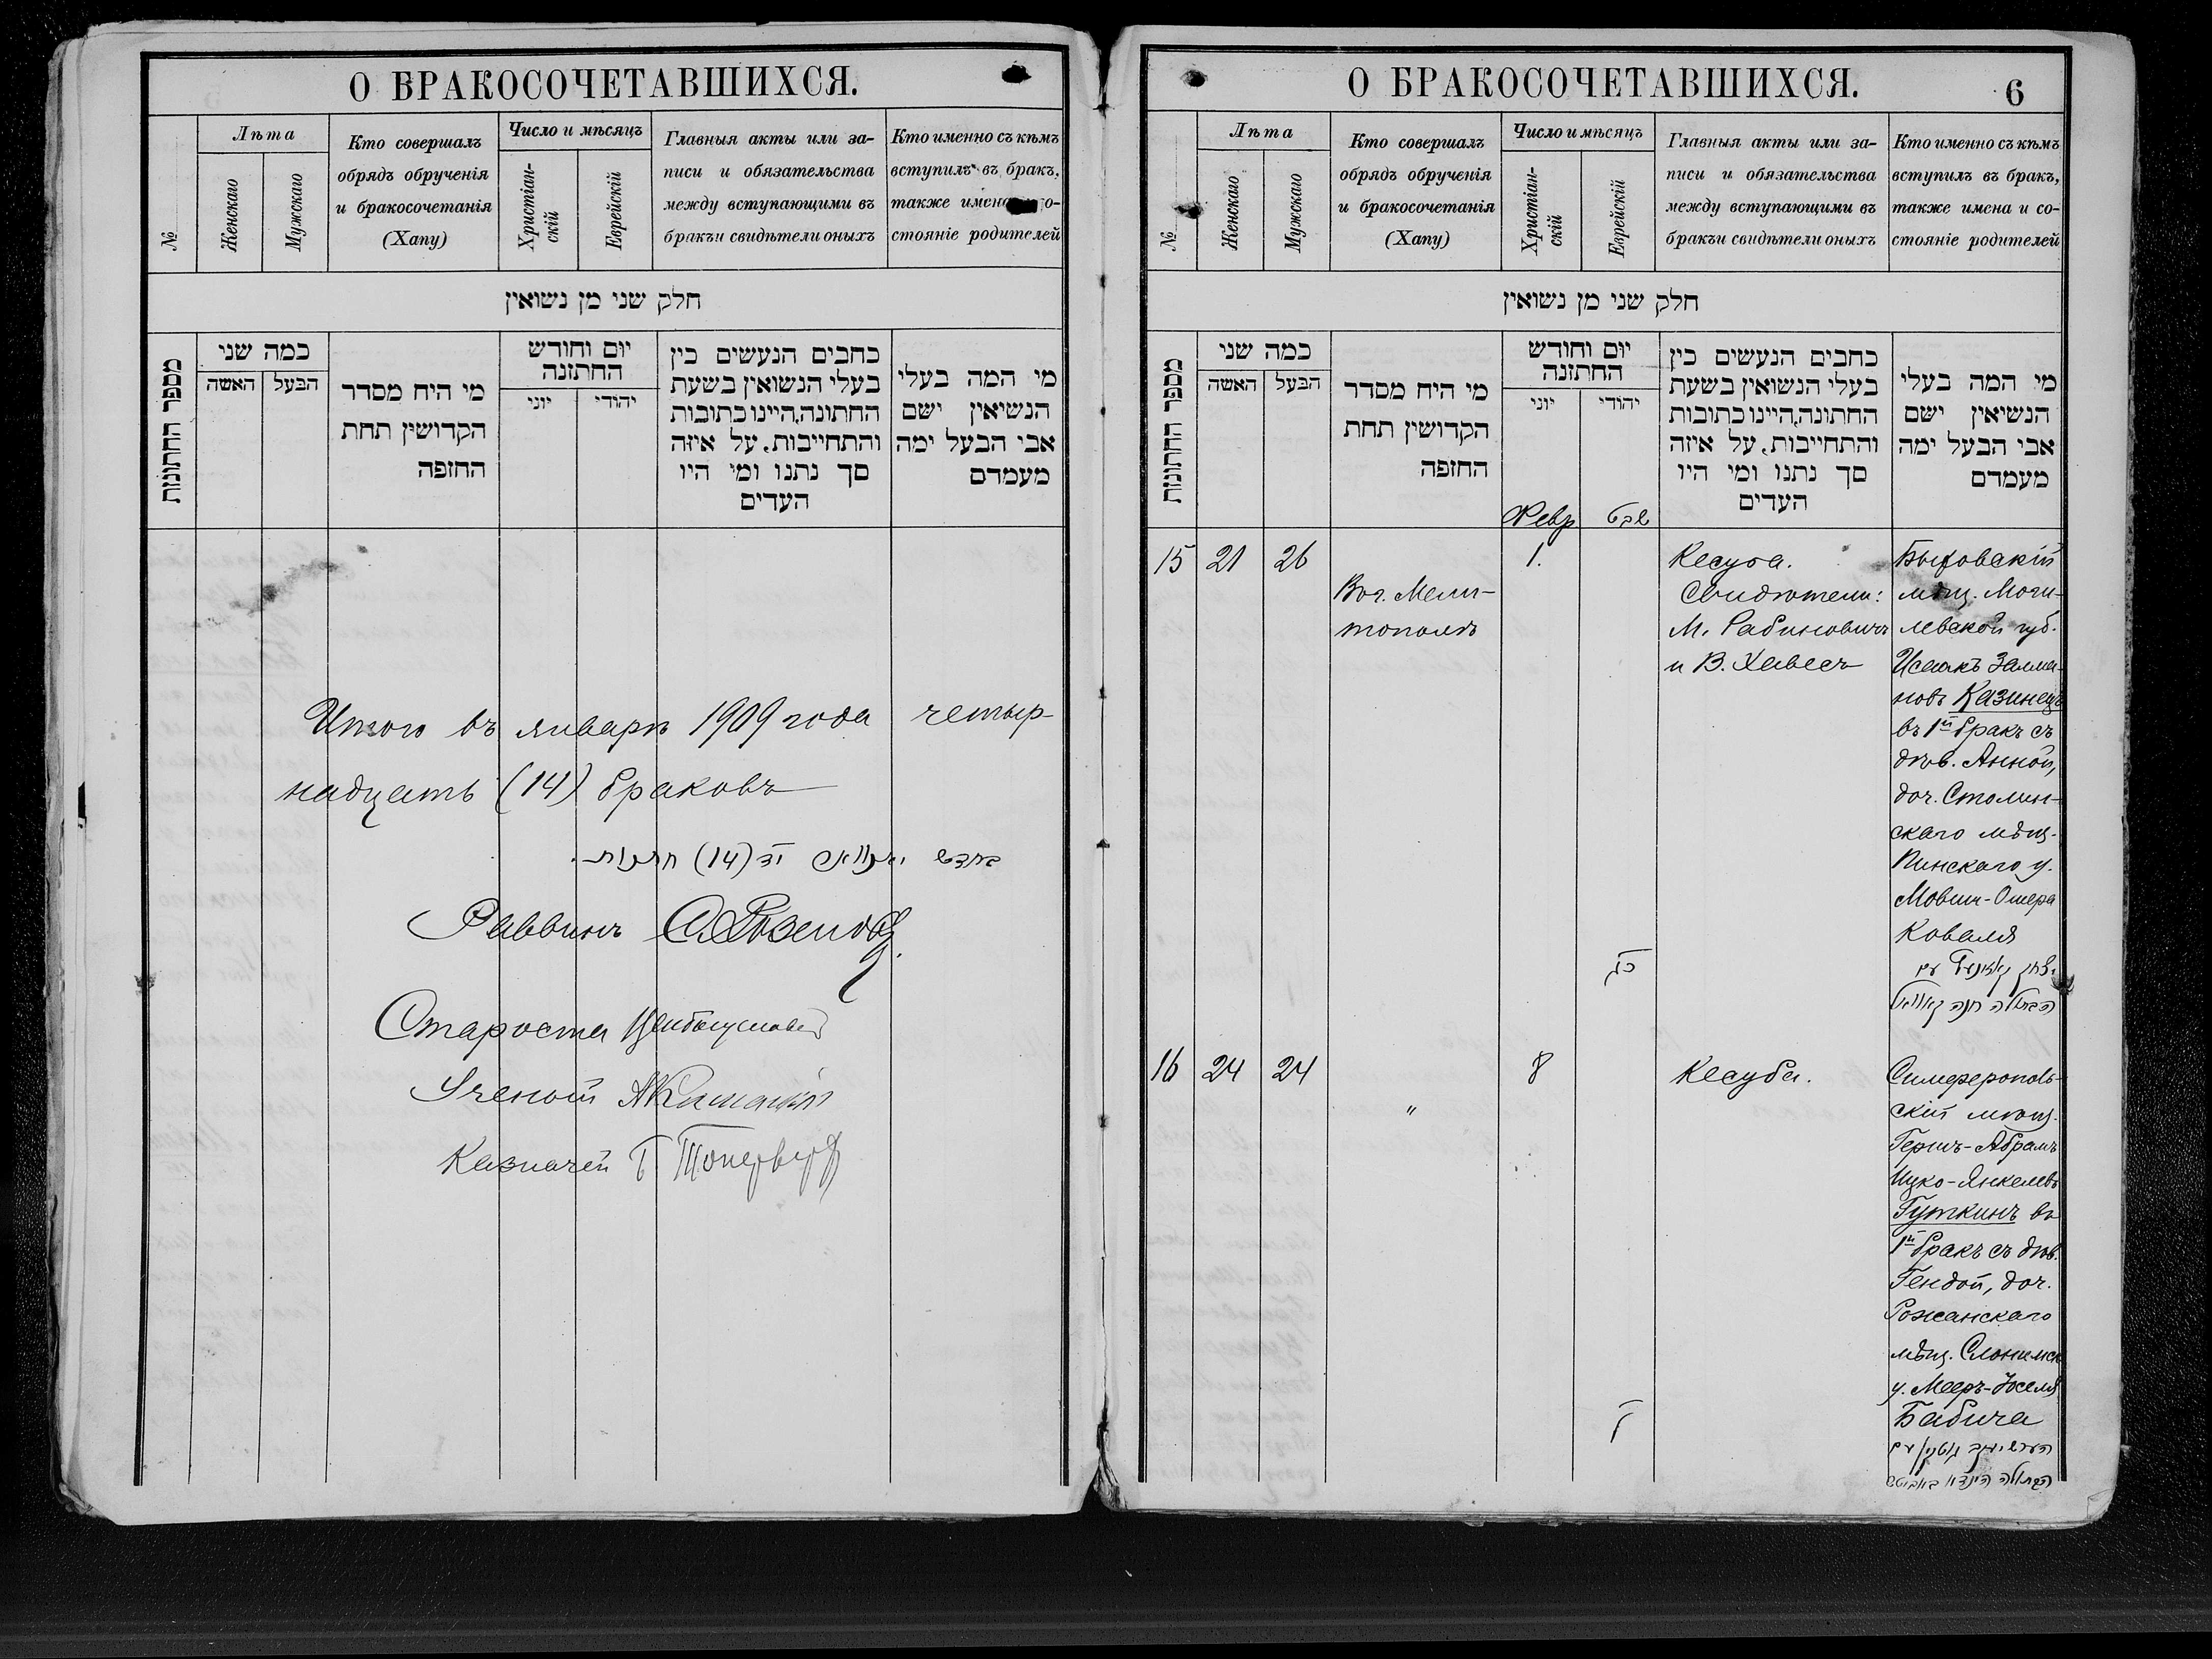 О БРАКОСОЧЕТАВШИХСЯ.
№
Лѣта
Женскаго
Мужскаго
Кто совершалъ
обрядъ обрученія
и бракосочетанія
(Хапу)
Число и мѣсяцъ
Христіан-
скій
Еврейскій
Главныя акты или за-
писи и обязательства
между вступающими въ
бракъи свидѣтели оныхъ
Кто именно съ кѣмъ
вступилъ въ бракъ,
также имена
стояніе родителей
חלק שני מן נשואין
מספר החתונות
כמה שני
האשה
הבעל
מי היח מסדר
הקדושין תחת
החופה
יום וחודש
החתונה
יוני
יהודי
כתבים הנעשים בין
בעלי הנשואין בשעת
החתונה,היינו כתובות
והתחייבות, על איזה
סך נתנו ומי היו
העדים
מי המה בעלי
הנשיאין ישם
אבי הבעל ימה
מעמדם
Итого въ январѣ 1909 года четыр-
надцать (14) браковъ
בחדש יאנואר יד (14) חתנות
Раввинъ
Староста
Ученый
Казначей
О БРАКОСОЧЕТАВШИХСЯ.
6
№
Лѣта
Женскаго
Мужскаго
Кто совершалъ
обрядъ обрученія
и бракосочетанія
(Хапу)
Число и мѣсяцъ
Христіан-
скій
Еврейскій
Главныя акты или за-
писи и обязательства
между вступающими въ
бракъи свидѣтели оныхъ
Кто именно съ кѣмъ
вступилъ въ бракъ,
также имена и со-
стояніе родителей
חלק שני מן נשואין
מספר החתונות
כמה שני
האשה
הבעל
מי היח מסדר
הקדושין תחת
החופה
יום וחודש
החתונה
יוני
יהודי
כתבים הנעשים בין
בעלי הנשואין בשעת
החתונה,היינו כתובות
והתחייבות, על איזה
סך נתנו ומי היו
העדים
מי המה בעלי
הנשיאין ישם
אבי הבעל ימה
מעמדם
Февр
שבט
15
21
26
Во г. Мели-
тополѣ
1.
כג
Кесуба.
Свидѣтели:
М. Рабиновичъ
и В. Хавесъ
Быховскій
мѣщ. Моги-
левской губ.
Исаакъ Залма-
новъ Казинецъ
въ 1й бракъ съ
дѣв. Анной,
доч. Столин-
скаго мѣщ.
Пинскаго у.
Мовши-Ошера
Коваля
יצחק קאזינעץ עם
הבתולה חנה קאוואל
16
24
24
"
8
ל
Кесуба.
Симферополь-
скій мѣщ.
Гершъ-Абрамъ
Ицко-Янкелевъ
Гуткинъ въ
1й бракъ съ дѣв.
Гендой, доч.
Рожанскаго
мѣщ. Слонимск
у. Мееръ-Іоселя
Бабича
הבתולה הינדא באביטש